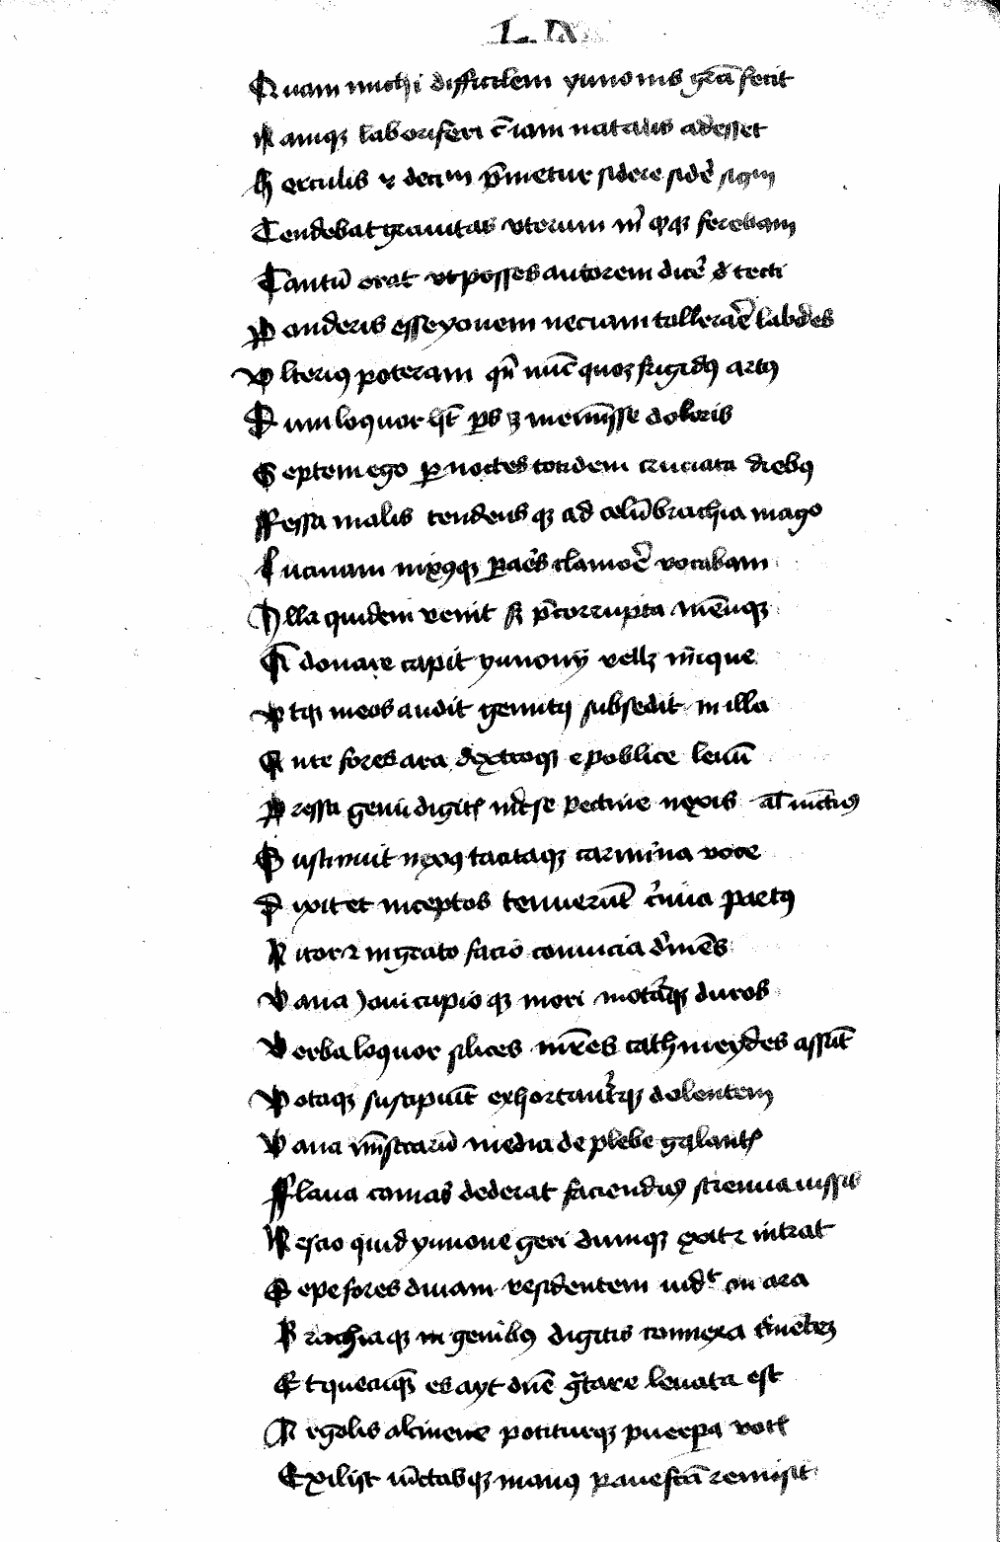 L IX
Quam michi difficilem yunonis gr̄a fecit
Namq; laboriferi c̄ iam natalis adesset
Herculis ⁊ decim p̄metur sidere sid'
Tendebat grauitas vterum m̄ q;q; ferebam
Tantū erat vt posses autorem dic'e tecti
Ponderis esse yovem nec iam tollerar̄e labores
Vlterius poteram qn̄ nūc quoq; frigidus artus
Dum loquor h̄t ps ⁊ meminisse doloris
Septem ego p noctes totidem cruciata diebus
Ffessa malis tendens q; ad celū brachia magno
Lucinam nixusq; pares clamor̄e vocabam
Illa quidem venit s; p̄corrupta meūq;
Donare capit yunoni vell; iniq̄ue
Vtq; meos audit gemitus subsedit in illa
Ante fores ara dextroq; a poblice leuū
Pressa genu digitis int' se pectine nexis al' iunctis
Sustinuit nexus tacitaq; carmina voce
Dixit et inceptos tenuerūt c'mina partus
Nitor ⁊ ingrato facio conuicia demēs
Vana Joui cupioq; mori moturaq; duros
Verba loquor silices mr̄es cathmeydes assūt
Votaq; suscipiūt exhortantq; dolentem
Vna mīstrarū media de plebe galantis
Fflaua comas dederat faciendis strenua iussis
Nescio quid yunone geri dumq; exit ⁊ intrat
Sepe fores diuam residentem uidt in ara
Brachiaq; in genibus digitis connexa tenētē
Et quecūq; es ayt dn̄e gr̄tare leuata est
Argolis alcmene potiturq; puerpa votis
Exiliit iūctasq; manus pauefcā remisit